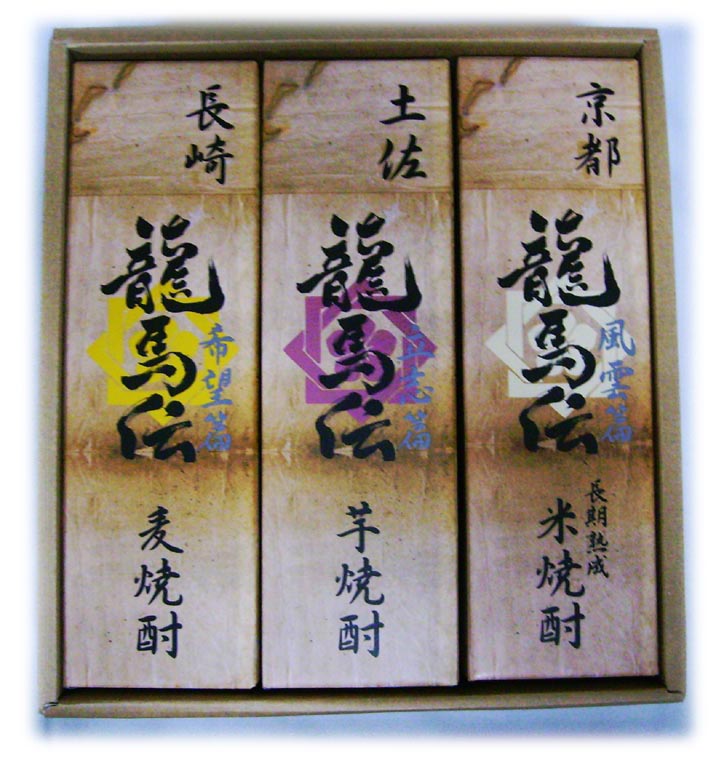 京都
龍馬伝
風雲篇
長期熟成
米焼酎
土佐
龍馬伝
立志篇
芋焼酎
長崎
龍馬伝
希望篇
麦焼酎